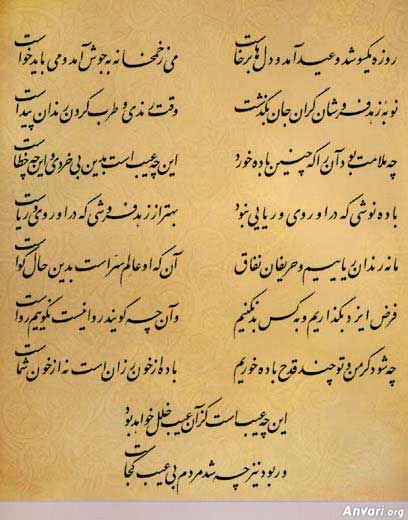 روزه یکسو شد و عید آمد و دل ها برخاست می ز خمخانه به جوش آمد و می باید خواست
نوبه زهد فروشان گران جان بگذشت وقت رندی و طرب کردن رندان پیداست
چه ملامت بود آن را که چنین باده خورد این چه عیب است بدین بی خردی و این چه خطاست
باده نوشی که در او روی و ریایی نبود بهتر از زهد فروشی که در او روی و ریاست
ما نه رندان ریاییم و حریفان نفاق آن که او عالم سر است بدین حال گواست
فرض ایزد بگذاریم و به کس بد نکنیم وآن چه گویند روا نیست نگوییم رواست
چه شود گر من و تو چند قدح باده خوریم باده از خون رزان است نه از خون شماست
این چه عیب است کز آن عیب خلل خواهد بود
ور بود نیز چه شد مردم بی عیب کجاست
Anvari.org